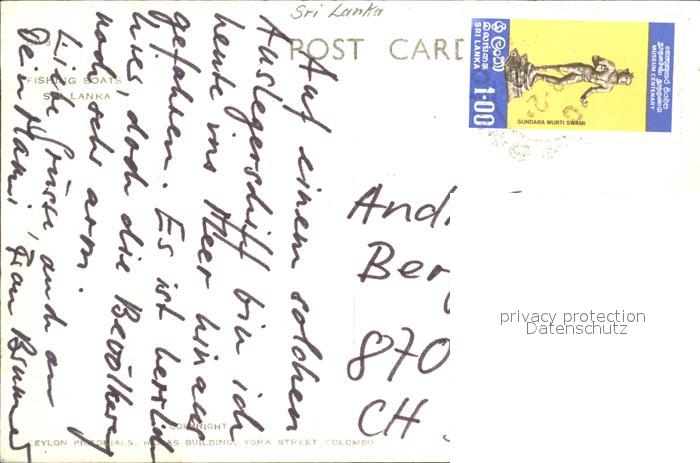 Sri Lanka
POST CARD
FISHING BOATS
SRI LANKA
Auf einem solchen
Auslegerschiff bin ich
heute ins Meer hinaus
gefahren. Es ist herrlich
hier, doch die Bevölkerg
noch sehr arm.
Liebe Grüsse auch an
Dein Mami, Frau Brunner
Andr
Ber
870
CH
ශ්‍රී ලංකා
இலங்கை
SRI LANKA
1·00
MUSEUM CENTENARY
SUNDARA MURTI SWAMI
privacy protection
Datenschutz
COPYRIGHT
CEYLON PICTORIALS, HEMAS BUILDING, YORK STREET, COLOMBO